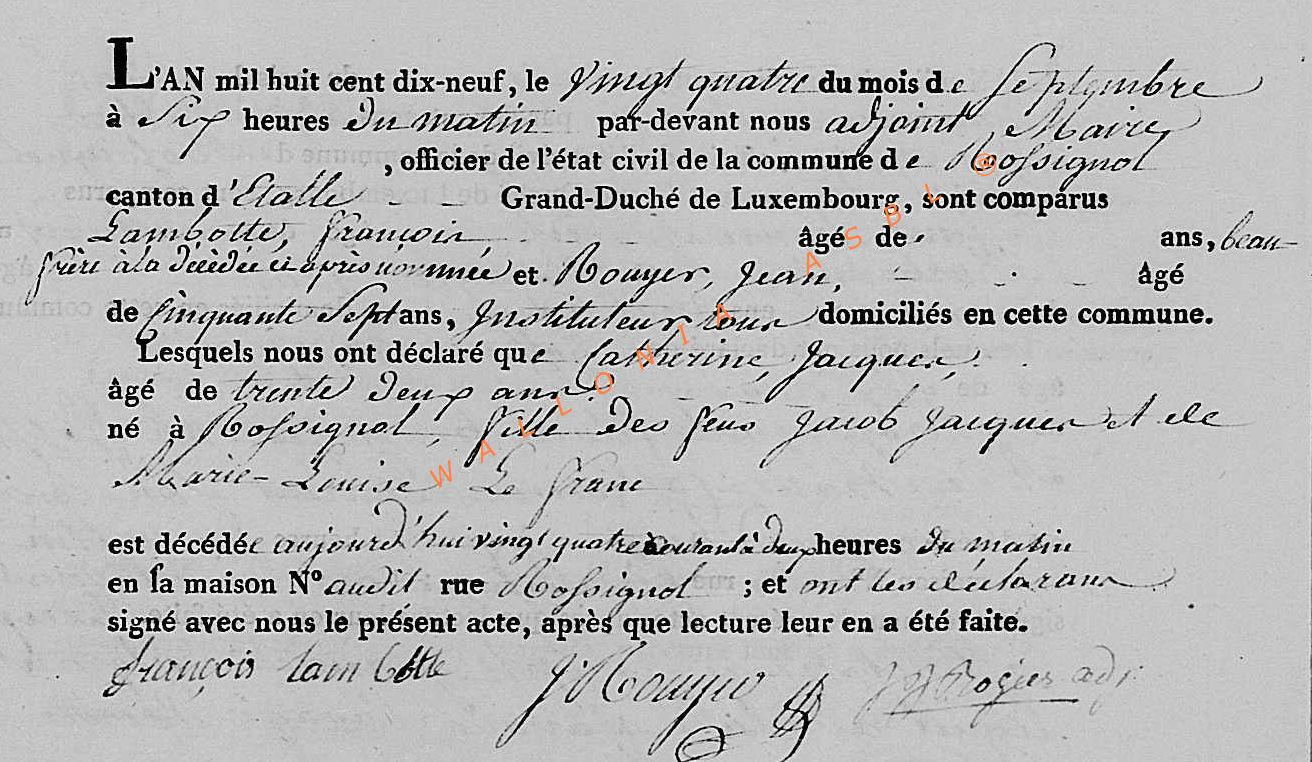 L'AN mil huit cent dix-neuf, le Vingt quatre du mois de Septembre
à Six heures Du matin par-devant nous adjoint, Maire,
, officier de l'état civil de la commune de Rossignol
canton d'Etalle - - Grand-Duché de Luxembourg, sont comparus
Lambotte, François, âgé de ans, beau-
frère à la décédée ci après nommée et Rouyer, Jean, âgé
de Cinquante Sept ans, Instituteur tous domiciliés en cette commune.
Lesquels nous ont déclaré que Catherine, Jacques,
âgé de trente Deux ans
né à Rossignol, fille Des feus Jacob Jacques et de
Marie-Louise Le franc
est décédée aujourd'hui vingt quatre courant à deux heures Du matin
en sa maison N° audit rue Rossignol ; et ont les déclarans
signé avec nous le présent acte, après que lecture leur en a été faite.
françois lambotte J Rouyer Rogier adj
WALLONIA ASBL @